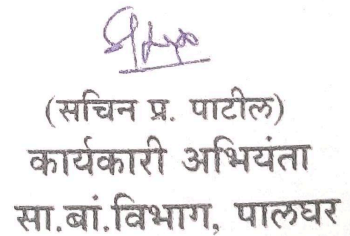 (सचिन प्र. पाटील)
कार्यकारी अभियंता
सा.बां.विभाग, पालघर